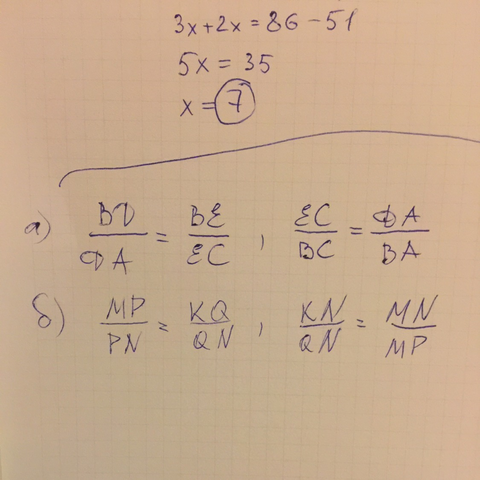 3x+2x = 86 - 51
5x = 35
x = 7
а) BD/DA = BE/EC , EC/BC = DA/BA
б) MP/PN = KQ/QN , KN/QN = MN/MP